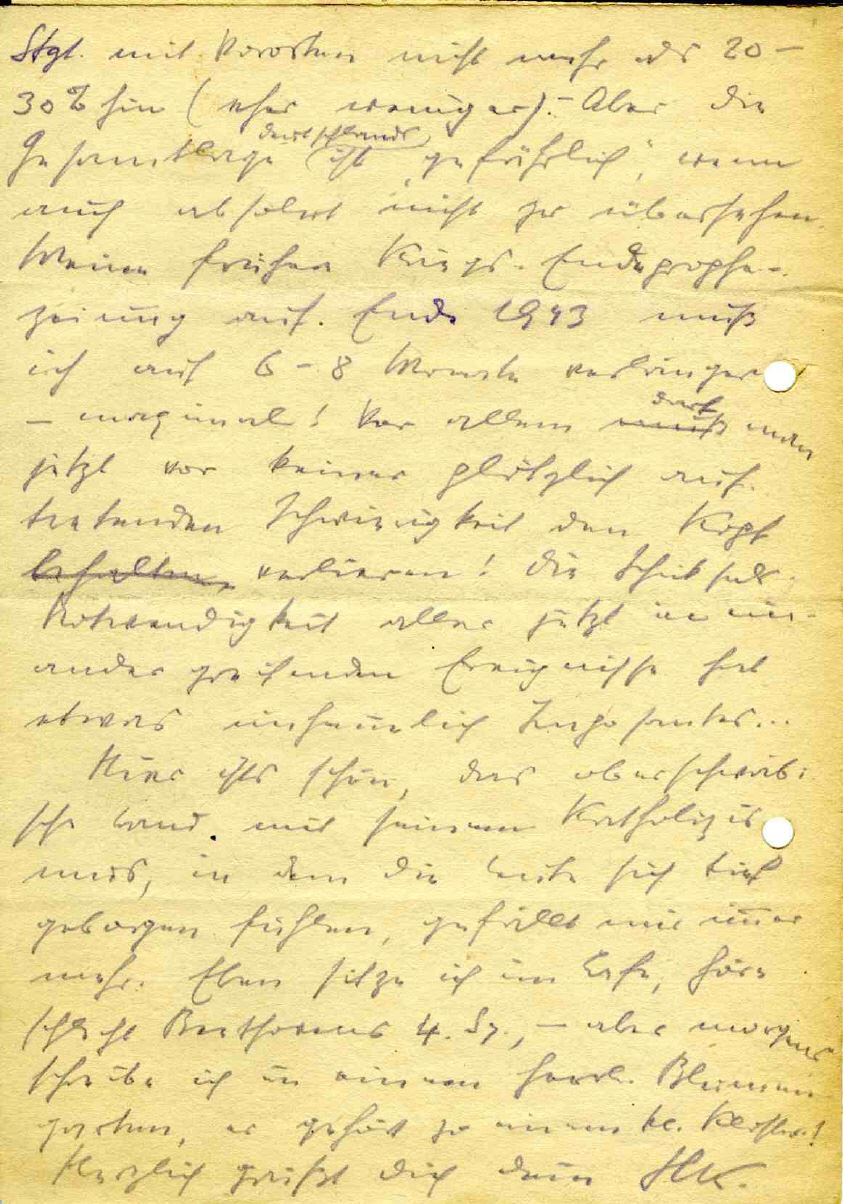 Stgt. mit Vororten nicht mehr als 20–
30% hin (eher weniger).– Aber die
Deutschlands
Gesamtlage ist „gefährlich“, wenn
auch absolut nicht zu übersehen.
Meine frühere Kriegs-Endeprophe-
zeiung auf Ende 1943 muß
ich auf 6–8 Monate verlängern
– maximal! Vor allem darf man
jetzt vor keiner plötzlich auf-
tretenden Schwierigkeit den Kopf
behalten, verlieren! Die Schicksals-
Notwendigkeit aller jetzt inein-
ander greifenden Ereignisse hat
etwas unheimlich Imposantes...
Hier ists schön, das oberschwäbi-
sche Land mit seinem Katholizis-
mus, in dem die Leute sich tief
geborgen fühlen, gefällt mir immer
mehr. Eben sitze ich im Café, höre
schlecht Beethovens 4. Sy., – aber morgens
schreibe ich in einem herrl. Blumen
garten, er gehört zu einem kl. Kloster!
Herzlich grüßt dich dein HK.